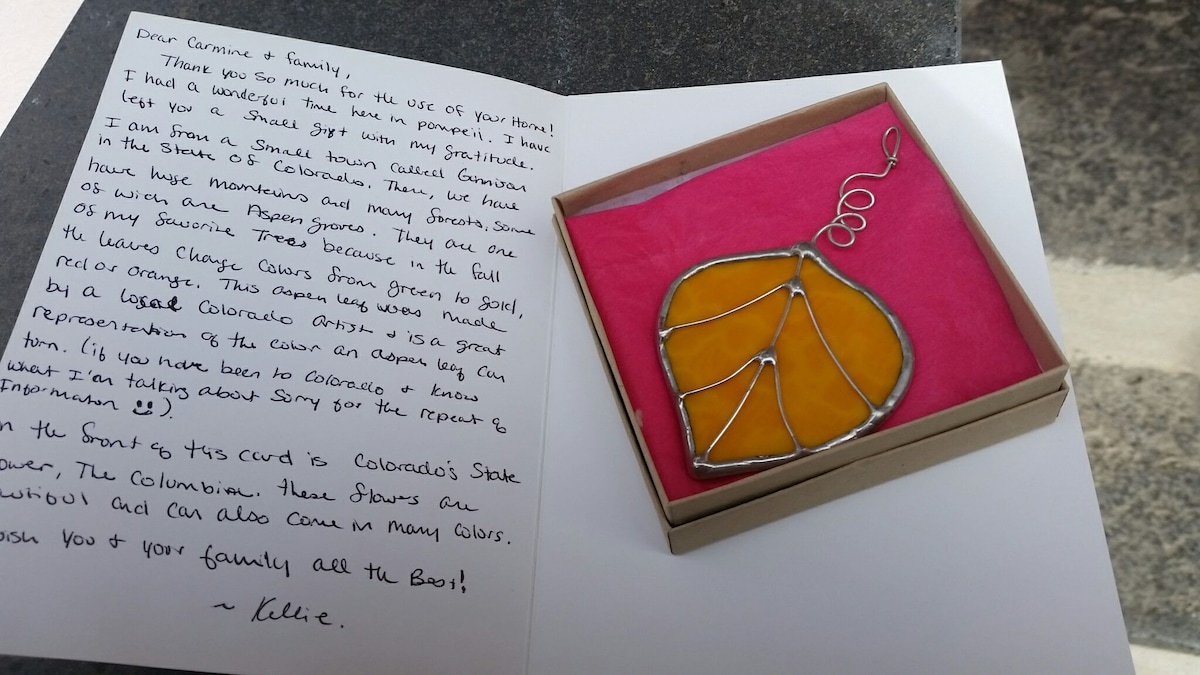 Dear Carmine & family,
Thank you so much for the use of your Home!
I had a wonderful time here in pompeii. I have
left you a small gift with my gratitude.
I am from a small town called Gunnison
in the State of Colorado. There, we have
have huge mountains and many forests, some
of wich are Aspen groves. They are one
of my favorite Trees because in the fall
the leaves change colors from green to gold,
red or orange. This aspen leaf was made
by a local Colorado Artist & is a great
representation of the color an aspen leaf can
turn. (if you have been to Colorado & know
what I'm talking about sorry for the repeat of
Information).
n the front of this card is Colorado's State
ower, The Columbine. these flowers are
utiful and can also come in many colors.
ish you & your family all the Best!
~ Kellie.